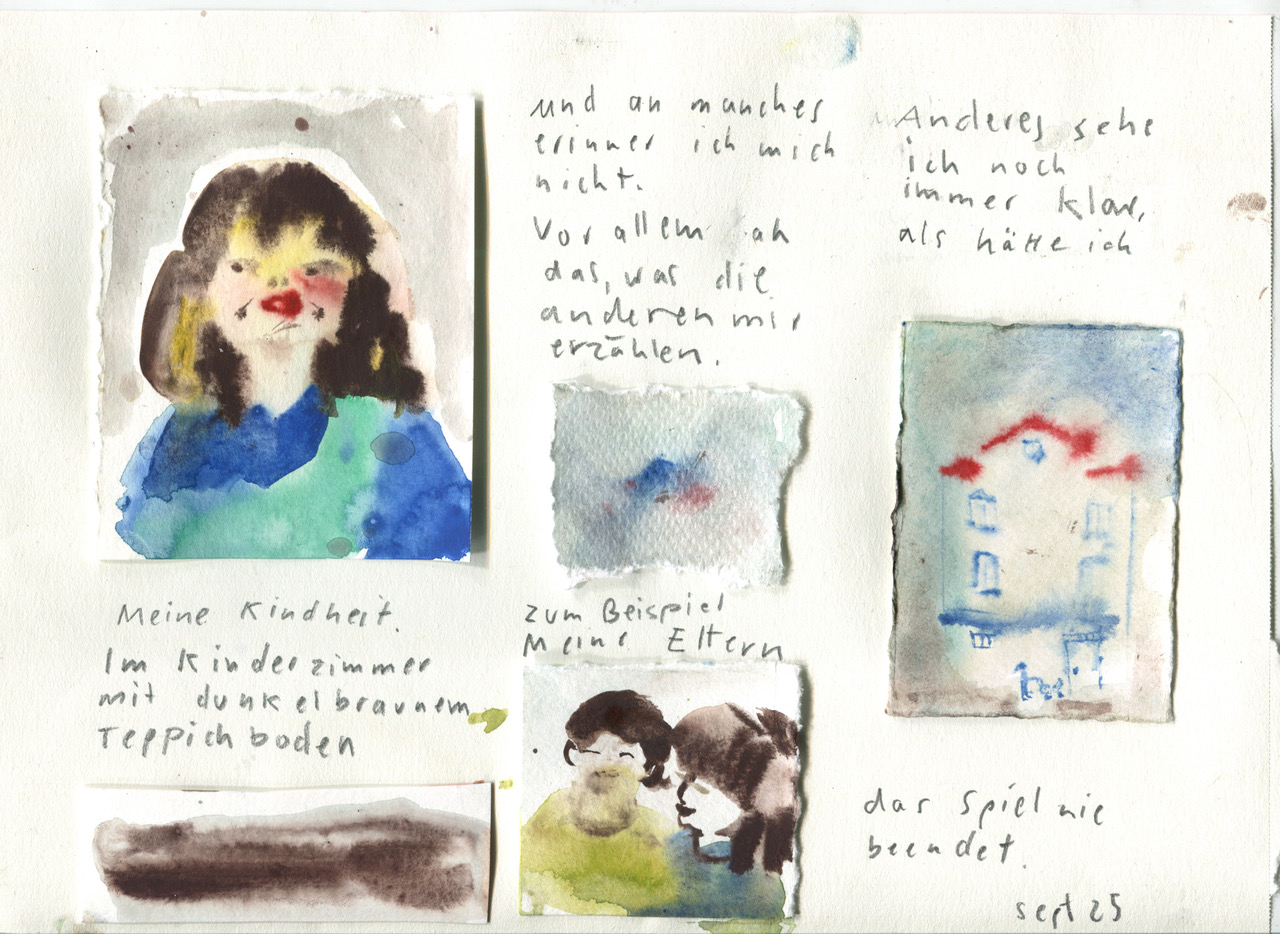 Meine Kindheit.
Im Kinderzimmer
mit dunkelbraunem
Teppichboden
und an manches
erinner ich mich
nicht.
Vor allem an
das, was die
anderen mir
erzählen.
zum Beispiel
Meine Eltern
Anderes sehe
ich noch
immer klar,
als hätte ich
das Spiel nie
beendet.
sept 25